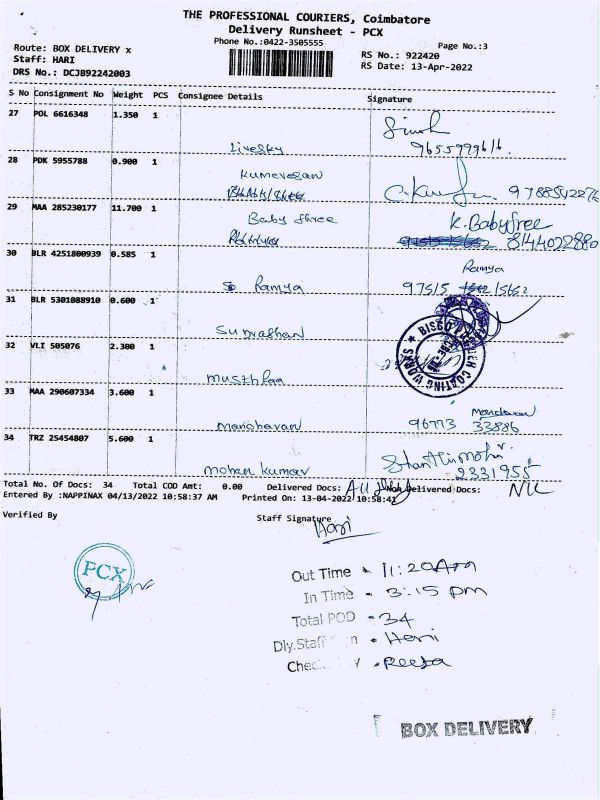 THE PROFESSIONAL COURIERS, Coimbatore
Delivery Runsheet - PCX
Phone No.:0422-3505555
Page No.:3
Route: BOX DELIVERY x
RS No.: 922420
Staff: HARI
RS Date: 13-Apr-2022
DRS No.: DCJB92242003
S No Consignment No Weight PCS Consignee Details Signature
27 POL 6616348 1.350 1
Livesky 9655999616
28 PDK 5955788 0.900 1
Kumaresan
29 MAA 285230177 11.700 1
Baby Shree K.Babyfree
8144022880
30 BLR 4251800939 0.585 1
Ramya
Ramya 97515 15652
31 BLR 5301088910 0.600 1
32 VLI 505076 2.300 1
BISCO
COATING WORKS
33 MAA 290607334 3.600 1
Manoharan 96773 33886
34 TRZ 25454807 5.600 1
Mohan Kumar 2331955
Total No. Of Docs: 34 Total COD Amt: 0.00 Delivered Docs: All Non Delivered Docs: Nil
Entered By :NAPPINAX 04/13/2022 10:58:37 AM Printed On: 13-04-2022 10:58:41
Verified By Staff Signature
Hari
PCX
Out Time - 11:20Am
In Time - 3:15 pm
Total POD - 34
Dly.Staff - Hari
BOX DELIVERY